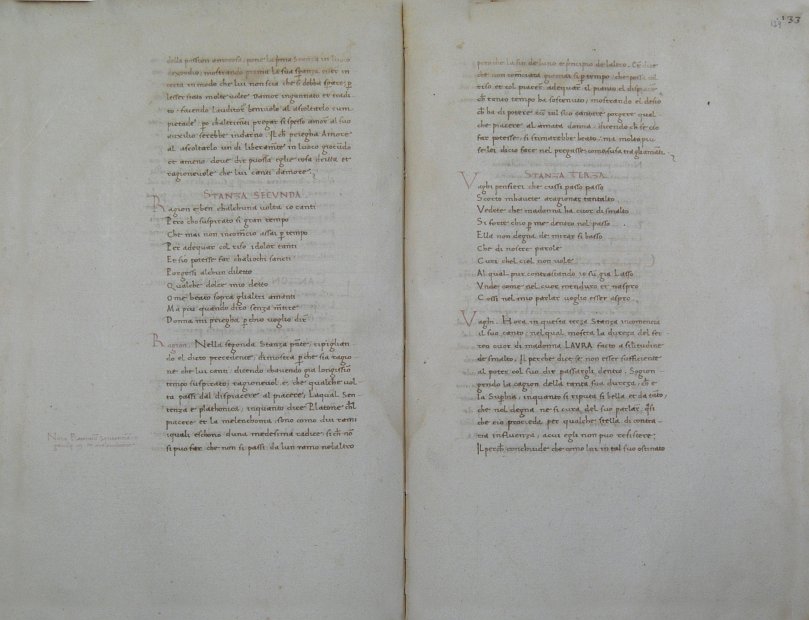 della passion amorosa, pone la prima Stanza in luoco
exordio, mostrando prima la sua speranza esser in
certa in modo che lui non scia che si debba sperare, p
lesser stato molte volte damor ingannato et tradi
to. facendo lauditor benivolo al ascoltarlo cum
pietade, pregar si spesso amor al suo
auxilio serebbe indarno. Il ch priegha Amore
al ascoltarlo un di liberamte in luoco giocūdo
et ameno, dove dir possa eglie cosa dritta et
ragionevole che lui canti damore.
STANZA SECUNDA.
Ragion e ben chalchuna volta io canti
Pero cho suspirato si gran tempo
Che mai non incomicio assai p tempo
Per adequar col riso i dolor tanti
Et sio potesse far chaliochi sancti
Porgessi alchun diletto
Qualche dolce mio detto
O me beato sopra glialtri amanti
Ma piu quando diro senza mētire
Donna mi priegha p chio voglio dire
Ragion. Nella segonda Stanza pnte, ripiglian
do el dicto precedente, dimostra p che sia ragio
ne che lui canti, dicendo chavendo gia longissīo
tempo suspirato, ragionevol e, che qualche vol
ta passi dal dispiacere al piacere, Laqual Sen
tenza e plathonica, inquanto dice Platone chl
piacere et la melenchonia sono como dui rami
iquali eschono duna medesima radice, si ch nō
si puo far che non si passi da lun ramo nelaltro
Nota Platonis Sententia
133
129
percehe la fin de luno e principio de laltro. Et dice
che non comiciara giamai si p tempo, che possa col
riso et col piacer, adequar il pianto, el dispiacere
ch tanto tempo ha sostenuto, mostrando el desio
ch ha di potere cū col suo cantare porgere qual
che piacere al amata donna, dicendo ch se cio
far potesse, si stimarebbe beato, ma molto piu
STANZA TERZA.
Vaghi pensieri che cussi passo passo
Scorto mhavete aragionar tantalto
Vedete che madonna ha cuor di smalto
Si forte chio p me dentro nol passo
Ella non degna de mirar si basso
Che di nostre parole
Curi chel ciel non vole
Al qual pur contrastando io su gia lasso
Unde come nel cuor menduro et naspro
Cossi nel mio parlar voglio esser aspro
Vaghi. Hora in questa terza Stanza incomencia
il suo canto, nel qual mostra la dureza del fer
reo cuor di madonna LAVRA facto a similitudine
de smalto, Il perche dice se, non esser sufficiente
al poter col suo dir passargli dentro, Sogion
gendo la cagion della tanta sua dureza, ch e
la Suphia, inquanto si riputa si bella et da tāto,
che nol degna, ne si cura, del suo parlar, q̄si
che cio proceda per qualche stella di contra-
ria influenza, a cui egli non puo resistere,
Il perch conclude che como lui in tal suo ostinato